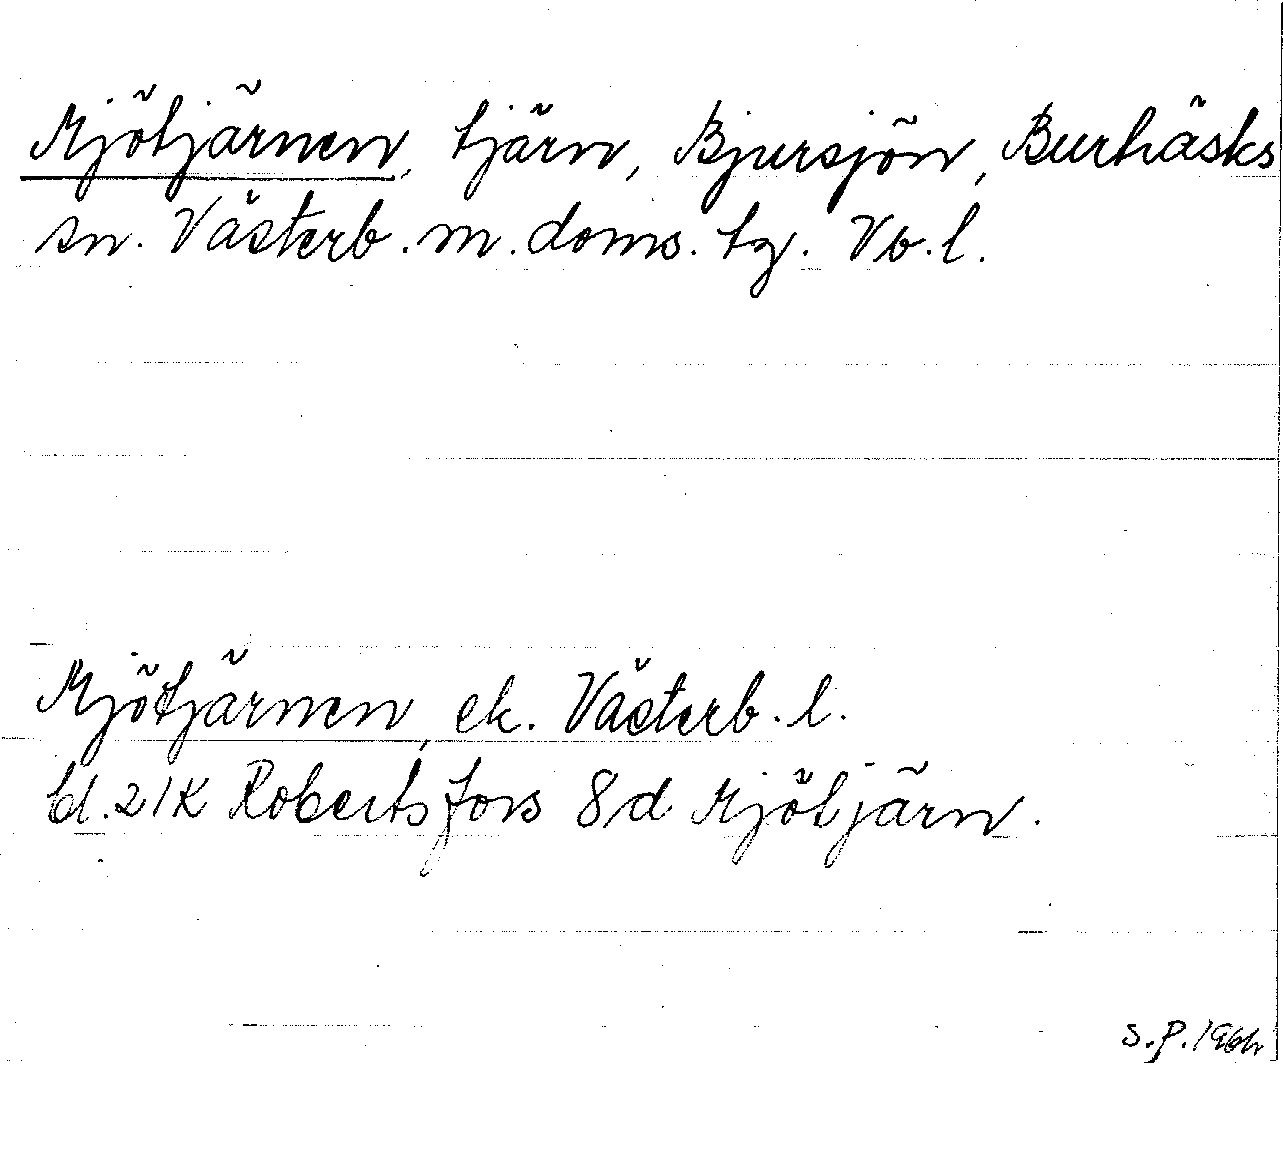 Mjötjärnen, tjärn, Bjursjön, Burträsks
sn. Västerb. m. doms. tg. Vb. l.
Mjötjärnen, ek. Västerb. l.
bl. 21K Robertsfors 8d Mjötjärn.
S.P. 1964